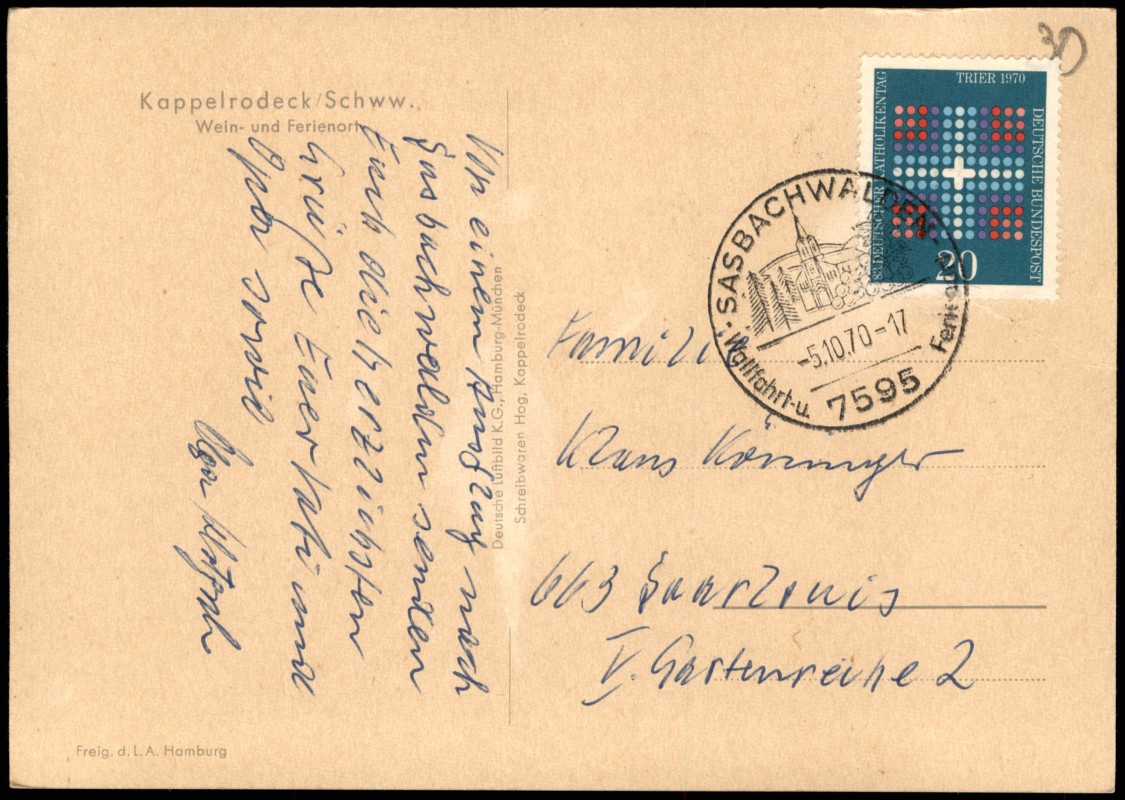 Kappelrodeck/Schww.,
Wein- und Ferienort
einem Ausflug nach
Sasbachwalden senden
Euch die herzlichsten
Grüße Euer Kati und
Opa sowie
Deutsche Luftbild K.G., Hamburg-München
Schreibwaren Hog, Kappelrodeck
Freig. d. L. A. Hamburg
30
TRIER 1970
DEUTSCHER KATHOLIKENTAG
DEUTSCHE BUNDESPOST
20
SASBACHWALDEN
-5.10.70-17
Wallfahrt-u.
7595
Familie
Klaus Köninger
663 Saarlouis
V. Gartenreihe 2